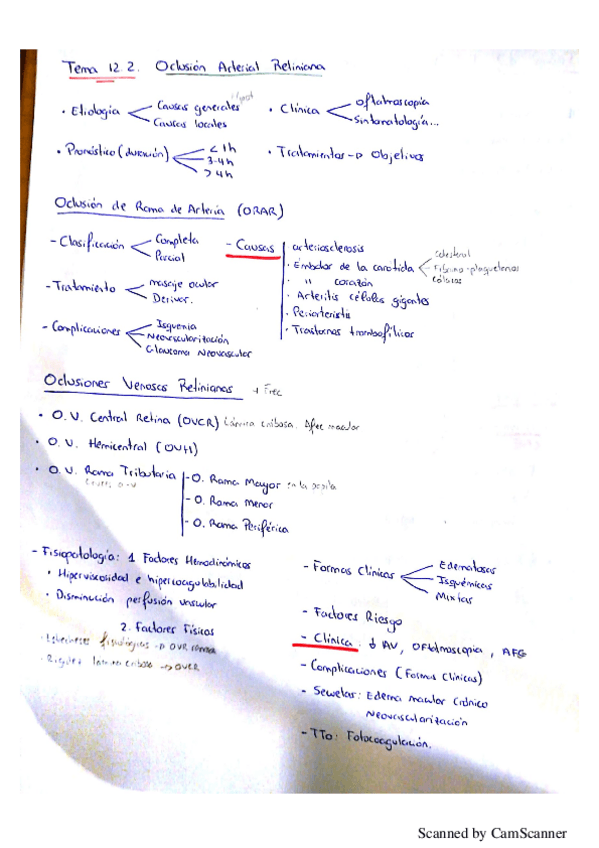 Tema 12.2. Oclusión Arterial Retiniana
• Etiología
Causas generales
Causas locales
• Clínica
oftalmoscopia
Sintomatología...
• Pronóstico (duración)
< 1h
3-4h
> 4h
• Tratamientos → Objetivos
Oclusión de Rama de Arteria (ORAR)
- Clasificación
Completa
Parcial
- Tratamiento
masaje ocular
Derivar.
- Complicaciones
Isquemia
Neovascularización
Glaucoma Neovascular
- Causas
arteriosclerosis
• Embolos de la carótida
Colesterol
Fibrino-plaquetarios
Cálcicos
• " corazón
• Arteritis células gigantes
• Periarteritis
• Trastornos trombofílicos
Oclusiones Venosas Retinianas + Frec
• O.V. Central Retina (OVCR) Lámina cribosa. Afec macular
• O.V. Hemicentral (OVH)
• O.V. Rama Tributaria
- O. Rama Mayor en la papila
- O. Rama Menor
- O. Rama Periférica
- Fisiopatología: 1 Factores Hemodinámicos
• Hiperviscosidad e hipercoagulabilidad
• Disminución perfusión vascular
2. Factores Físicos
fisiológicos → OVR
• Rigidez lámina cribosa → OVCR
- Formas Clínicas
Edematosas
Isquémicas
Mixtas
- Factores Riesgo
- Clínica: ↓ AV, Oftalmoscopia, AFG
- Complicaciones (Formas Clínicas)
- Secuelas: Edema macular Crónico
Neovascularización
- TTo: Fotocoagulación.
Scanned by CamScanner